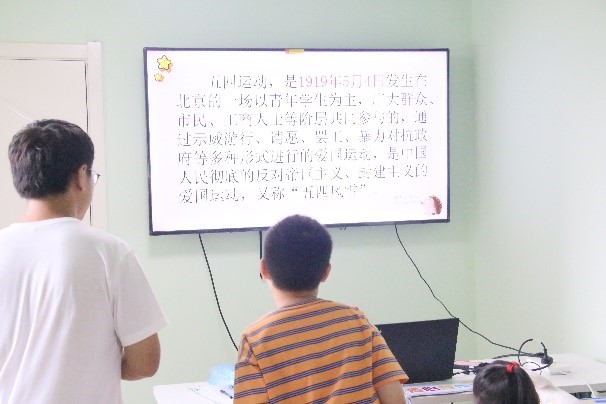 五四运动，是1919年5月4日发生在
北京的一场以青年学生为主，广大群众、
市民、工商人士等阶层共同参与的，通
过示威游行、请愿、罢工、暴力对抗政
府等多种形式进行的爱国运动，是中国
人民彻底的反对帝国主义、封建主义的
爱国运动，又称“五四风雷”。